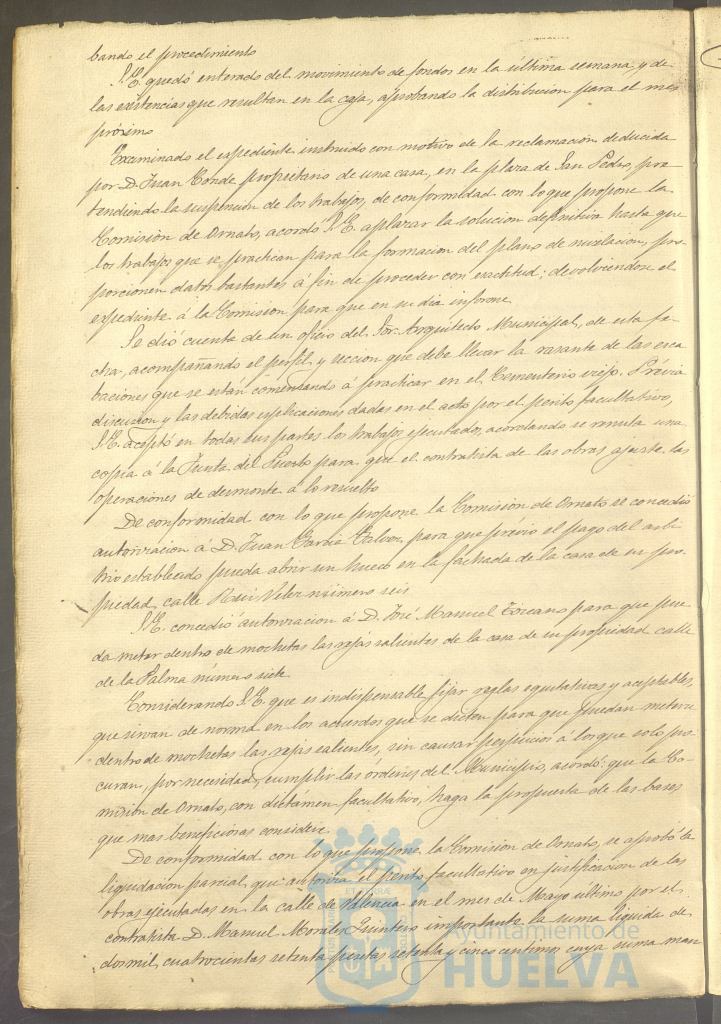 bando el procedimiento
S.E. quedó enterado del movimiento de fondos en la última semana, y de
las existencias que resultan en la caja, aprobando la distribucion para el mes
próximo
Examinado el espediente instruido con motivo de la reclamación deducida
por D. Juan Conde propietario de una casa, en la plaza de San Pedro, pre
tendiendo la suspension de los trabajos, de conformidad con lo que propone la
Comisión de Ornato, acordó S.E. aplazar la solucion definitiva hasta que
los trabajos que se practican para la formacion del plano de nivelacion, pro
porcionen datos bastantes á fin de proceder con exactitud; devolviendose el
expediente á la Comision para que en su dia informe
Se dió cuenta de un oficio del Sor. Arquitecto Municipal, de esta fe
cha, acompañando el perfil y seccion que debe llevar la rasante de las exca
baciones que se están comenzando á practicar en el Cementerio viejo. Prévia
discusion y las debidas esplicaciones dadas en el acto por el perito facultativo,
S.E. aceptó en todas sus partes los trabajos ejecutados, acordando se remita una
copia á la Junta del Puerto para que el contratista de las obras ajuste las
operaciones de desmonte á lo resuelto
De conformidad con lo que propone la Comisión de Ornato se concedió
autorizacion á D. Juan García para que prévio el pago del arbi
trio establecido pueda abrir un hueco en la fachada de la casa de su pro
piedad, calle Rui Velez número seis
S.E. concedió autorizacion á D. José Manuel Toscano para que pue
da meter dentro de mochetas las rejas salientes de la casa de su propiedad calle
de la Palma número siete
Considerando S.E. que es indispensable fijar reglas equitativas y aceptables,
que sirvan de norma en los acuerdos que se dicten para que puedan meterse
dentro de mochetas las rejas salientes, sin causar perjuicios á los que solo pro
curan, por necesidad, cumplir las órdenes del Municipio, acordó: que la Co-
misión de Ornato, con dictámen facultativo, haga la propuesta de las bases
que mas beneficiosas considere
De conformidad con lo que propone la Comision de Ornato, se aprobó la
liquidacion parcial que autoriza el perito facultativo en justificacion de las
obras ejecutadas en la calle de Valencia en el mes de Mayo último por el
contratista D. Manuel Morales Quintero importante la suma líquida de
dos mil cuatrocientas setenta pesetas setenta y cinco centimos cuya suma man
Ayuntamiento de
HUELVA